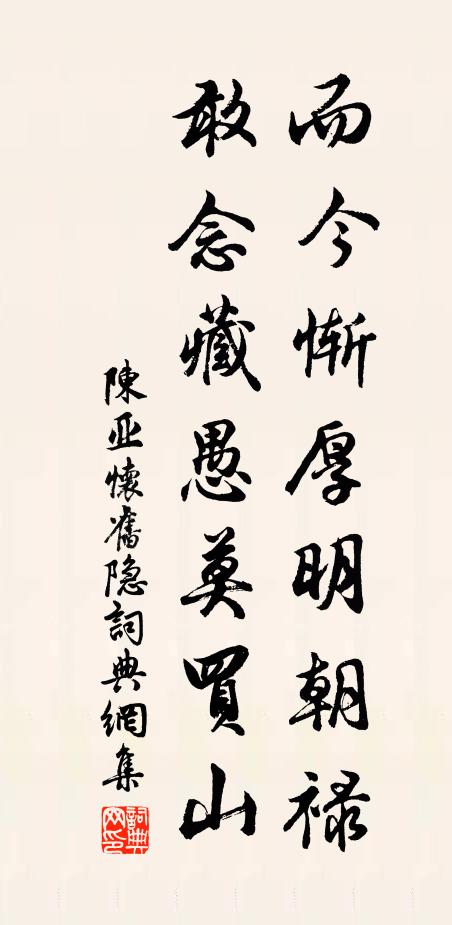 而今慚厚明朝禄
敢念藏愚莫買山
陳亚懷舊隐詞典網集
詞典网印